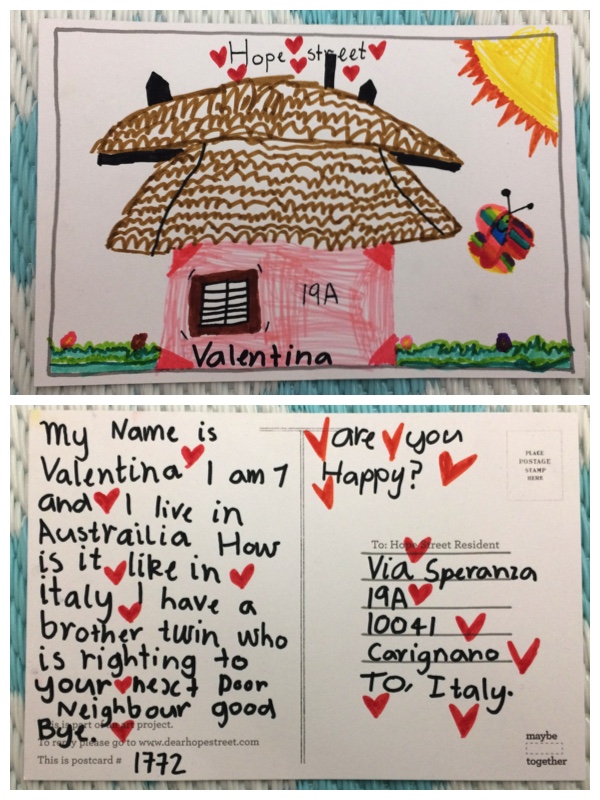 Hope street
19A
Valentina
My Name is
Valentina I am 7
and I live in
Austrailia How
is it like in
italy I have a
brother twin who
is righting to
your next Door
Neighbour good
Bye.
This is part of an art project.
To reply please go to www.dearhopestreet.com
This is postcard # 1772
are you
Happy?
PLACE
POSTAGE
STAMP
HERE
To: Hope Street Resident
Via Speranza
19A
10041
Carignano
TO, Italy.
maybe
together